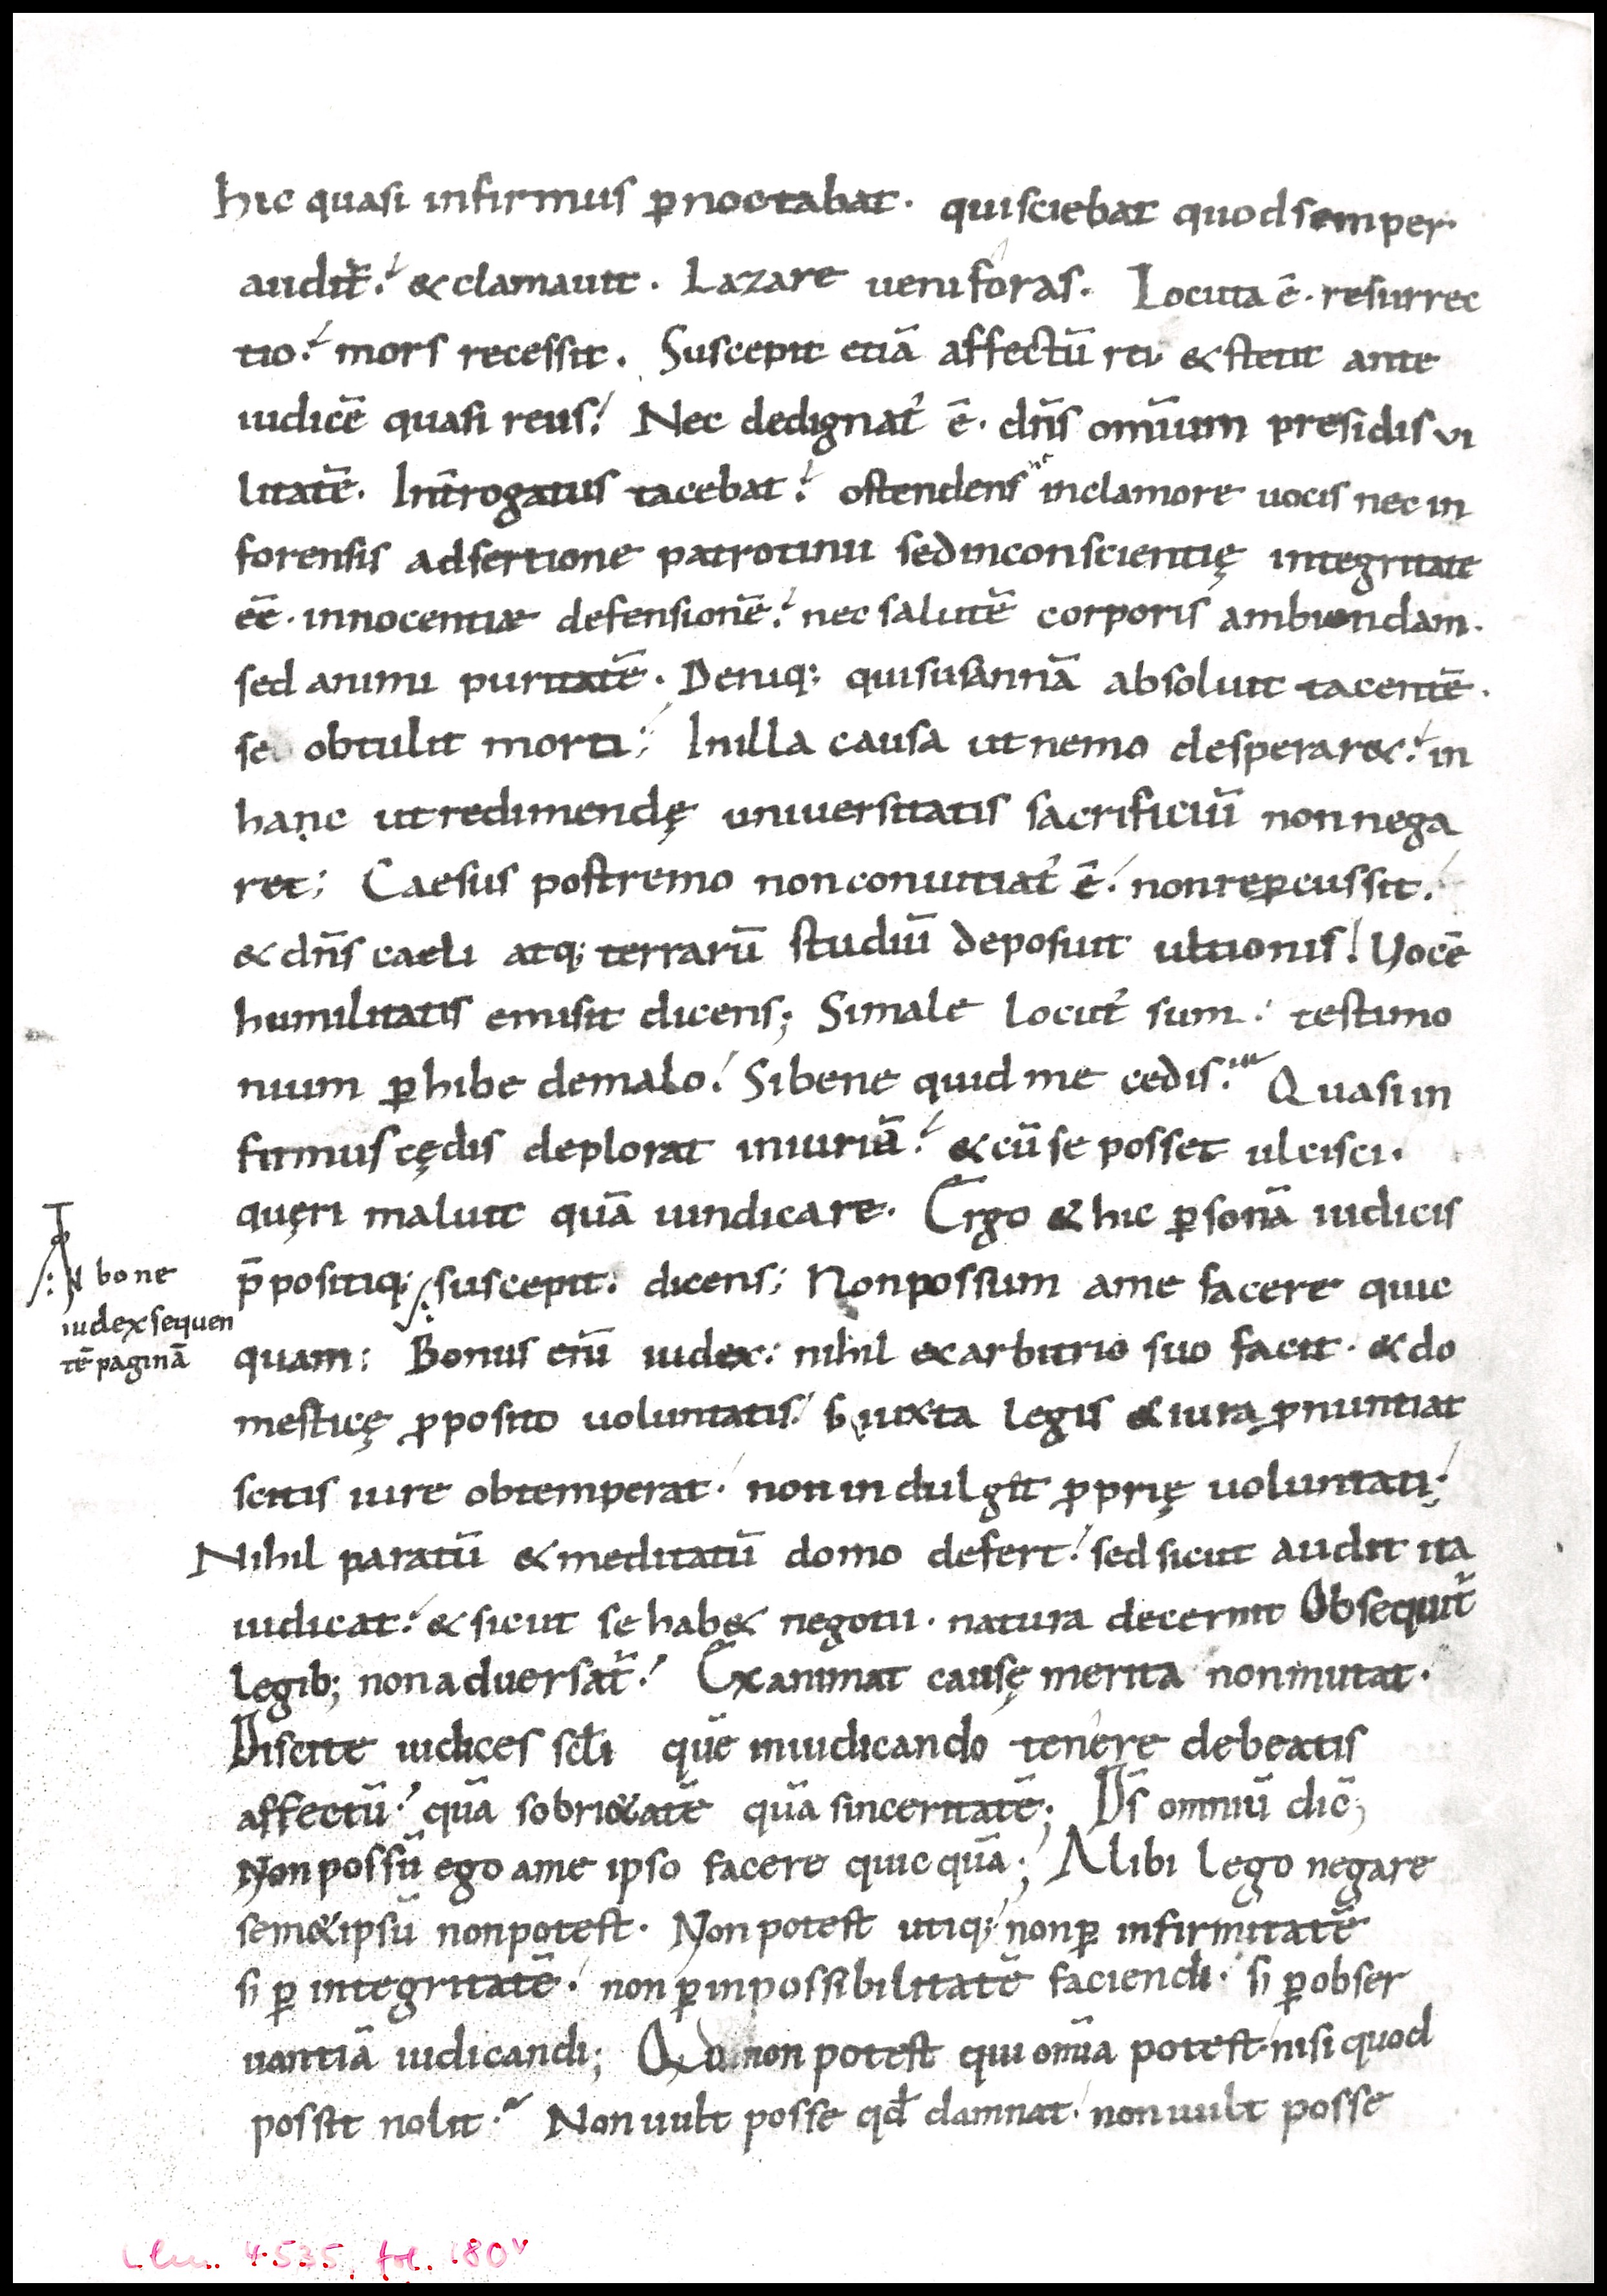 hic quasi infirmus ꝑnoctabat. qui sciebat quod semper.
auditr̄. & clamauit. Lazare ueni foras. Locuta ē. resurrec
tio. mors recessit. Suscepit etiā affectū rei & stetit ante
iudicē quasi reus. Nec dedignat᾽ ē. dn̄s omīum presidis vi
litatē. Int̄rogatus tacebat. ostendens nec in clamore uocis nec in
forensis adsertione patrocinii sed in conscientię integritate
eē̄. innocentiæ defensionē. nec salutē corporis ambiendam.
sed animi puritatē. Deniq; qui susannā absoluit tacentē.
se obtulit morti; In illa causa ut nemo desperar&. in
hanc ut redimendę uniuersitatis sacrificiū non nega
ret; Caesus postremo non conuitiat᾽ ē. non reꝑcussit.
& dn̄s caeli atq; terrarū studiū deposuit ultionis! Uocē
humilitatis emisit dicens; Si male locut᾽ sum. testimo
nium ꝑhibe de malo. Si bene quid me cedis. Quasi in
firmus cędis deplorat iniuriā. & cū se posset ulcisci.
quęri maluit quā uindicare. Ergo & hic ꝑsonā iudicis
p̄positiq; suscepit. dicens; Non possum a me facere quic
quam; Bonus eni̅ iudex: nihil ex arbitrio suo facit. & do
mesticę ꝓposito uoluntatis. s; iuxta legis & iura ꝓnuntiat
scitis iure obtemperat. non indulgit ꝓprię uoluntati;
Nihil paratū & meditatū domo defert. sed sicut audit ita
iudicat. & sicut se hab& negotii. natura decernit Obsequitr̄
legib; non aduersatr̄. Examinat causę merita non mutat.
Discite iudices scł̄i quē in iudicando tenere debeatis
affectū. quā sobri&atē quā sinceritatē; Ds̄ omniū dic̄;
Non possū ego a me ipso facere quic quā; Alibi lego negare
sem&ipsū non potest. Non potest utiq; non ꝑ infirmitatē
s; ꝑ integritatē. non ꝑ inpossibilitatē faciendi. s; ꝑ obser
uantiā iudicandi; Qd non potest qui omīa potest. nisi quod
possit nolit. Non uult posse qđ damnat. non uult posse
bone
iudex sequen
tē paginā
Clm. 4535, fol. 180v